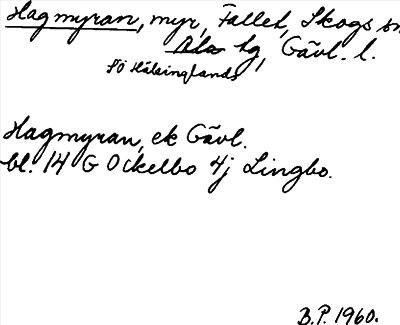 Hagmyran, myr, Fallet, Skogs sn
Ala tg, Gävl. l.
Sö Hälsinglands
Hagmyran, ek Gävl.
bl. 14 G Ockelbo 4j Lingbo.
B.P. 1960.